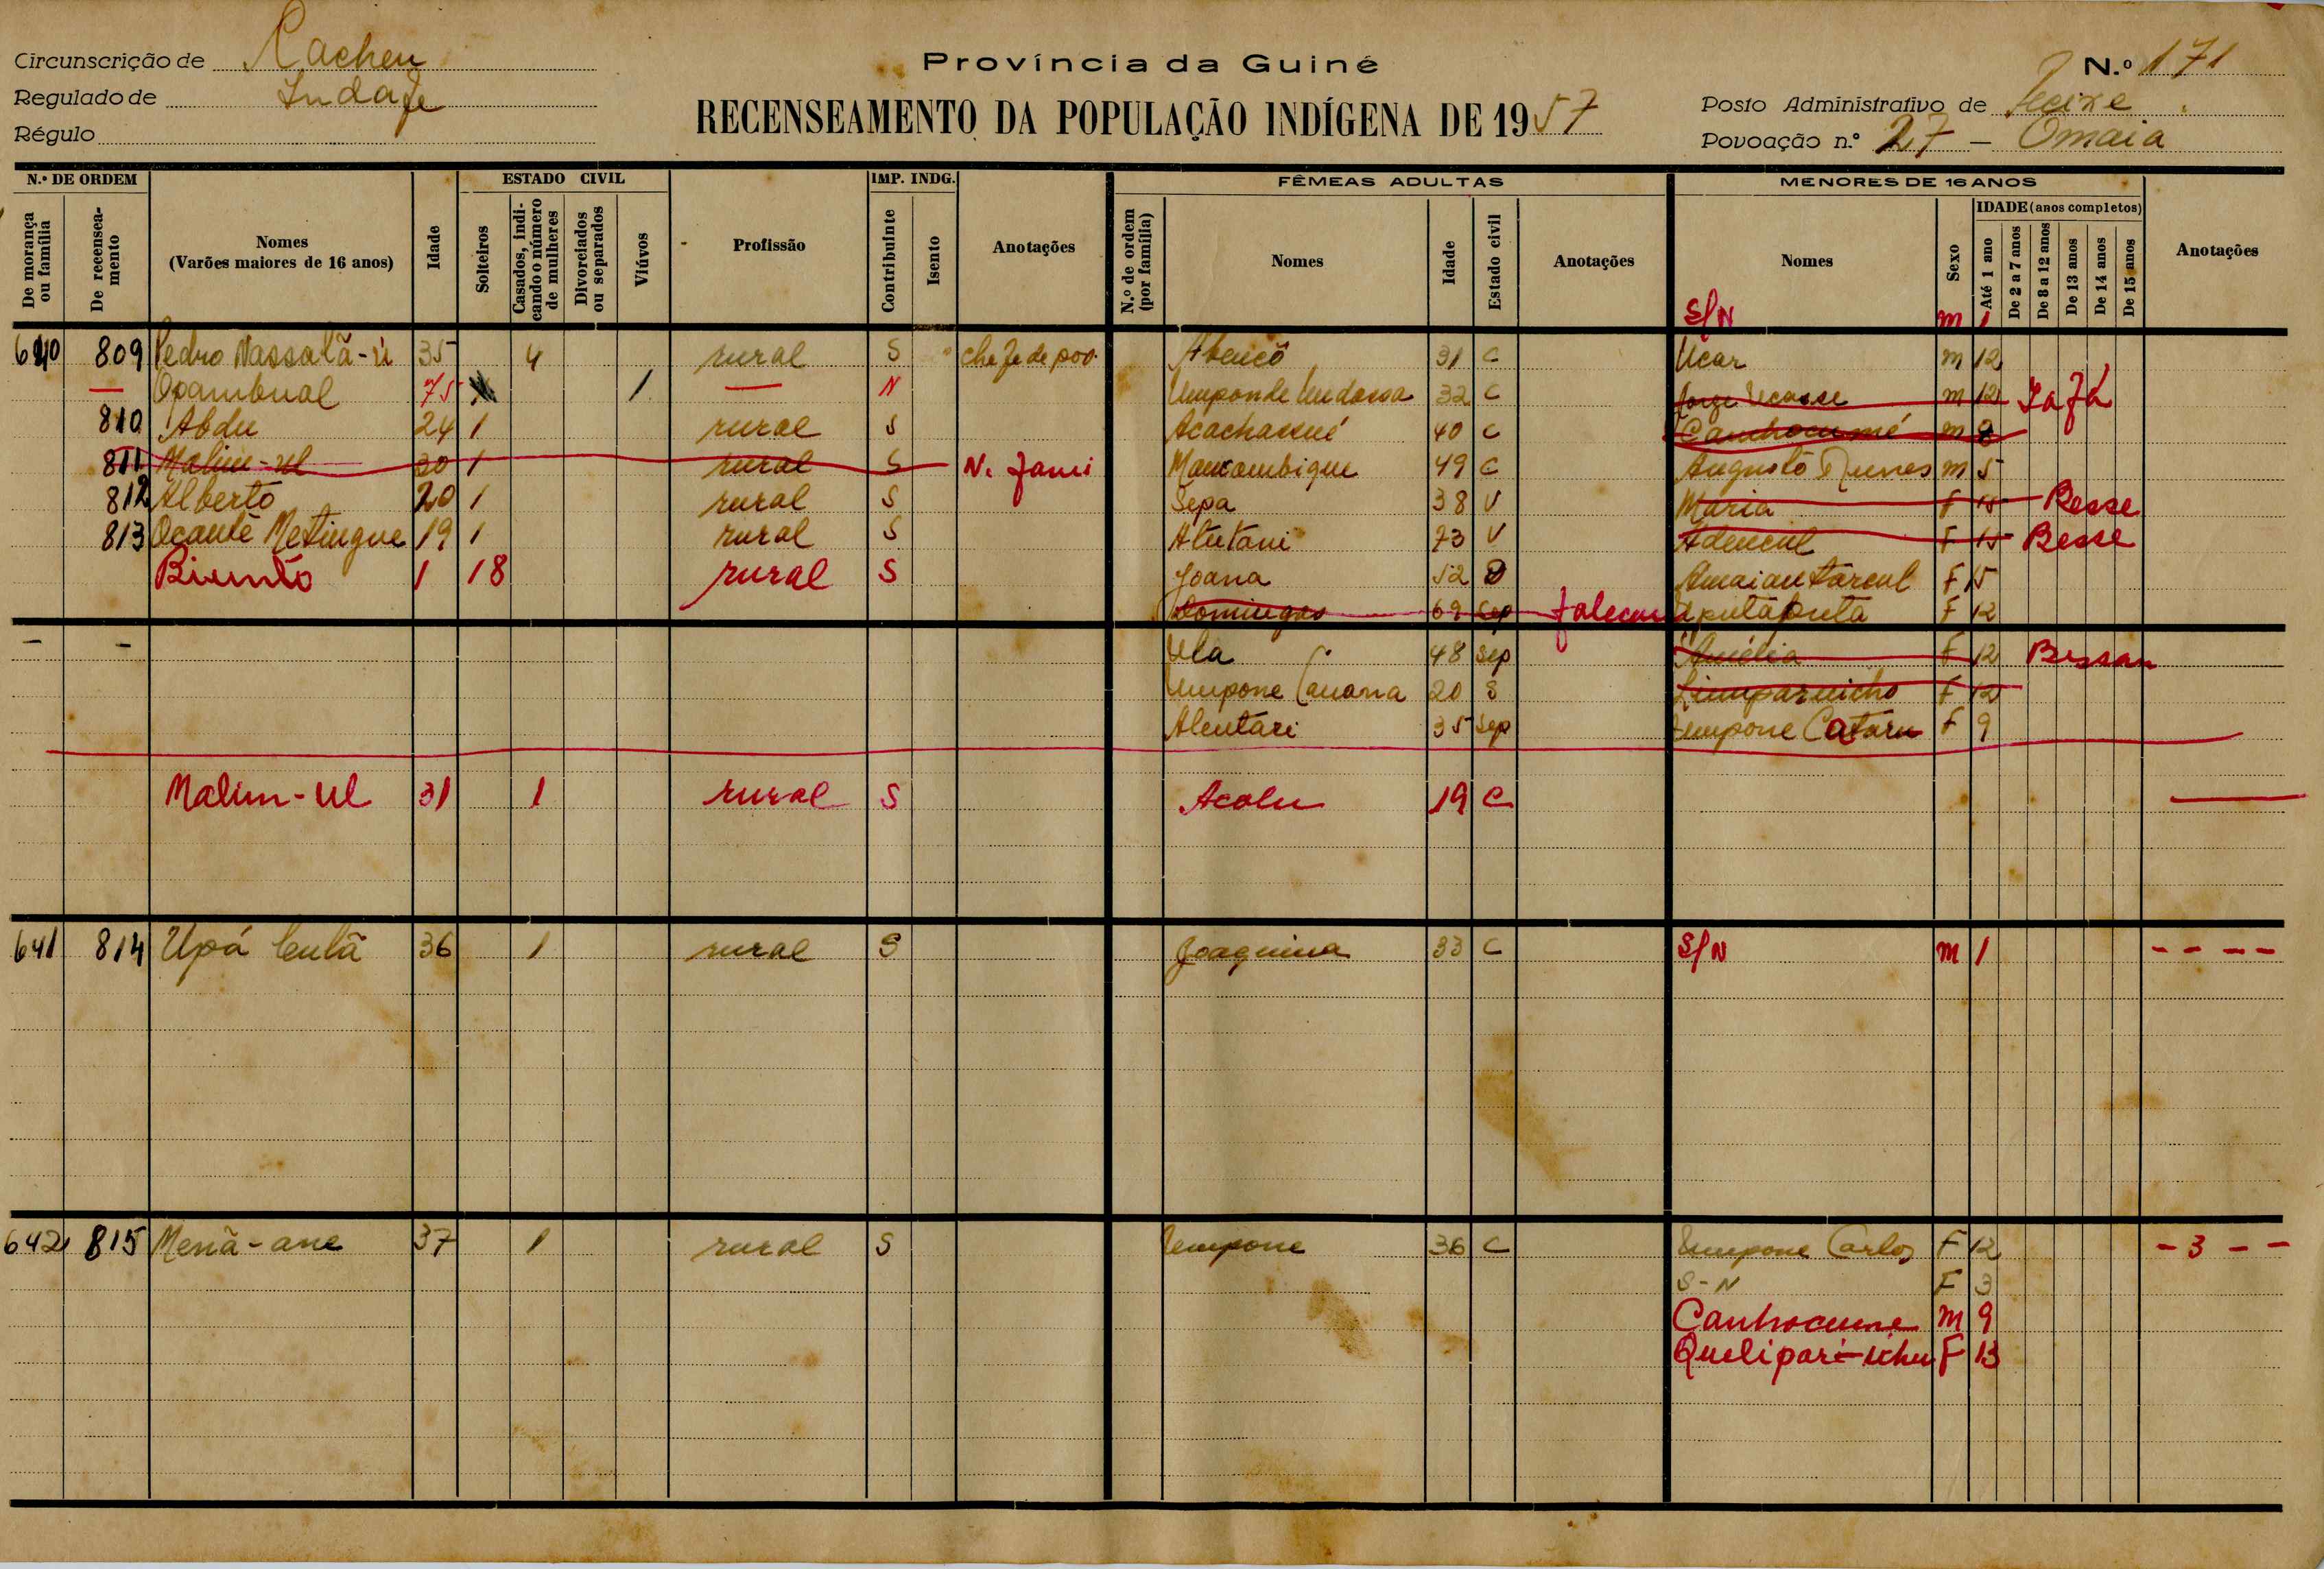 Circunscrição de Cacheu
Província da Guiné
N.º 171
Regulado de
RECENSEAMENTO DA POPULAÇÃO INDÍGENA DE 1957
Posto Administrativo de
Régulo
Povoação n.º 27 - Omaia
N.º DE ORDEM
ESTADO CIVIL
IMP. INDG.
FÊMEAS ADULTAS
MENORES DE 16 ANOS
De morança ou família
De recensea-mento
Nomes (Varões maiores de 16 anos)
Idade
Solteiros
Casados, indi-cando o número de mulheres
Divorciados ou separados
Viúvos
Profissão
Contribuinte
Isento
Anotações
N.º de ordem (por família)
Nomes
Idade
Estado civil
Anotações
Nomes
Sexo
IDADE (anos completos)
Até 1 ano
De 2 a 7 anos
De 8 a 12 anos
De 13 anos
De 14 anos
De 15 anos
Anotações
S/N m 1
640 809 Pedro Nassalã-ú 35 4 rural S chefe de pov. 31 C Ucar m 12
— Opambual 75 1 — N 32 C Jorge Ucasse m 12
810 Abdu 24 1 rural S Acachassué 40 C m 8
811 Malim-ul 30 1 rural S N. Jami Mancambique 49 C Augusto Nunes m 5
812 Alberto 20 1 rural S Sepa 38 V Maria F 15
813 Ocante Metingue 19 1 rural S 73 V F 15 Besse
Biunto 1 18 rural S Joana 52 F 15
Domingas 69 Sep faleceu F 12
- - Ula 48 Sep Amélia F 12 Bissau
Umpone 20 S F 12
35 Sep Umpone Cataru F 9
Malim-ul 31 1 rural S Acolu 19 C
641 814 Upá 36 1 rural S Joaquina 33 C S/N m 1 - - - -
642 815 Menã-ane 37 1 rural S Umpone 36 C Umpone Carlos F 12 - 3 - -
S-N F 3
Canhocume m 9
F 13